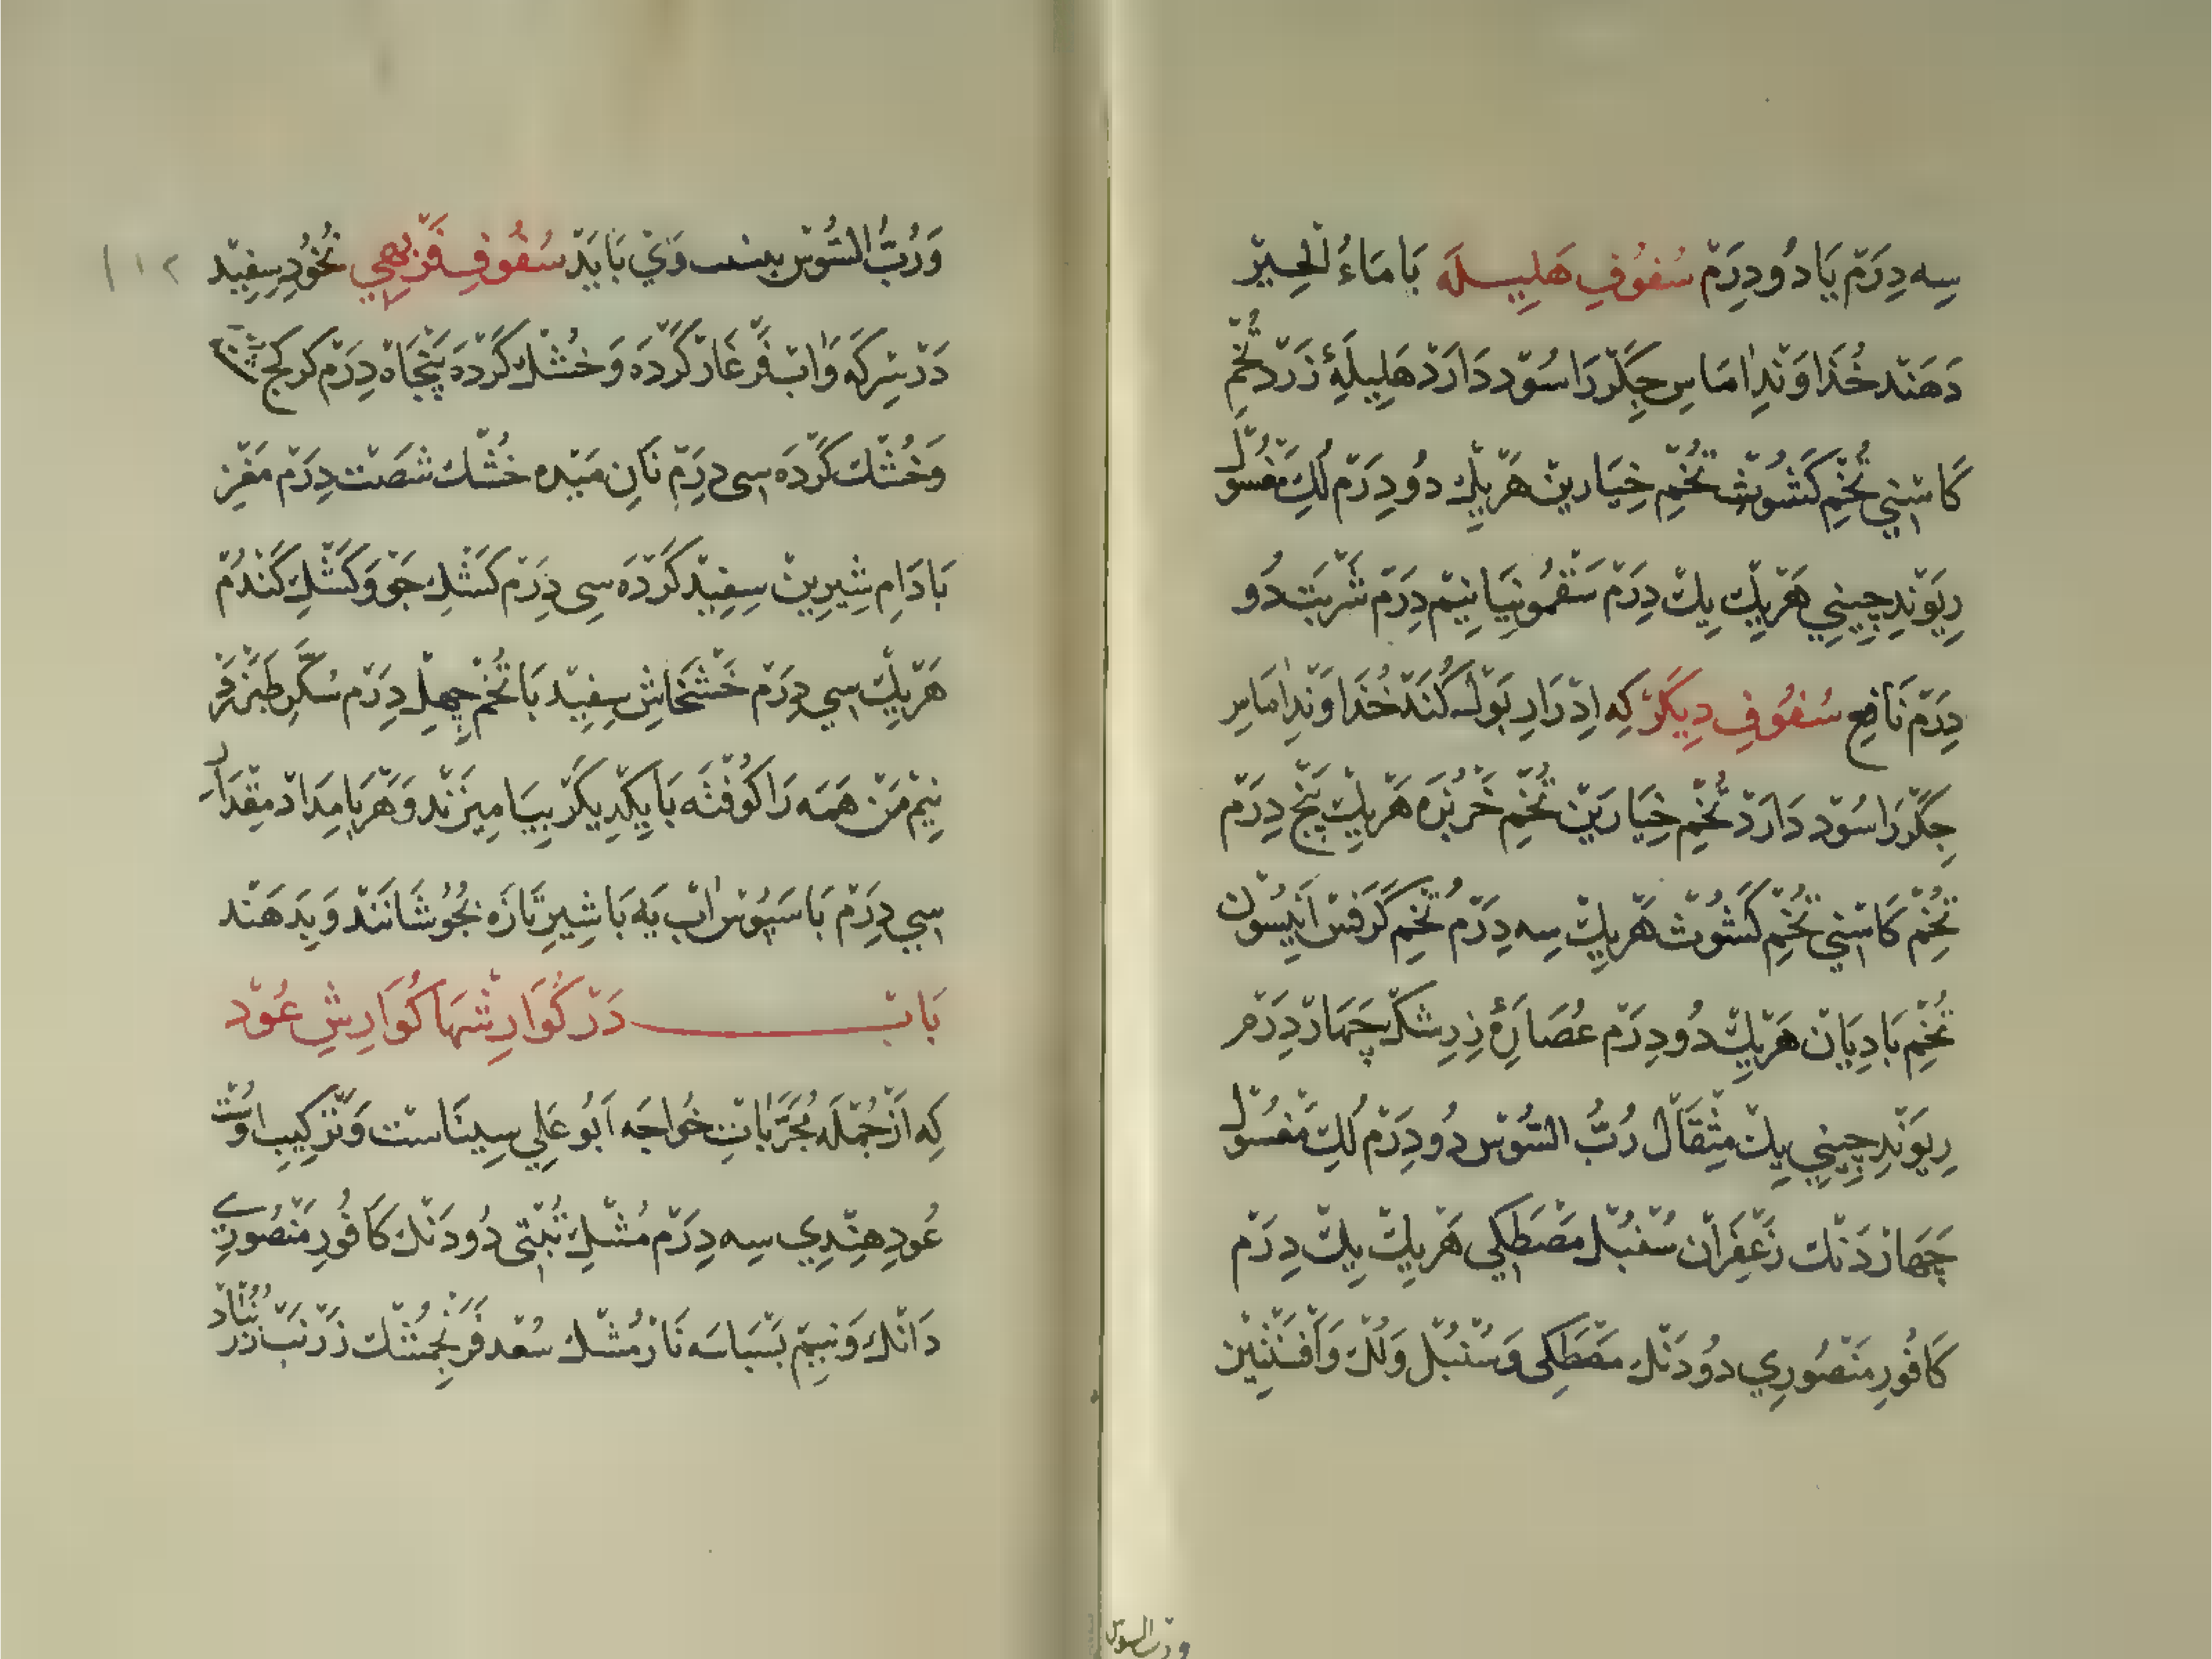 سِه دِرَمْ یَا دُو دِرَمْ سُفُوفِ هَلِیلَه بَا مَاءُ الْجُبْنْ
دَهَنْد خُدَاوَنْدِ اٰمَاسِ جِگَرْ رَا سُوْد دَارَدْ هَلِیلَهِٔ زَرْد تُخْمِ
كَاسْنِي تُخْمِ كَشُوْثْ تُخْمِ خِیَارَینْ هَرْیِكْ دُو دِرَمْ لُكِ مَغْسُولْ
رِیوَنْدِ چِینِي هَرْیِكْ یِكْ دِرَمْ سَقْمُونِیَا نِیْم دِرَمْ شَرْبَتْ دُو
دِرَمْ نَافِع سُفُوفِ دِیگَرْ كِه اِدْرَارِ بَوْلْ كُنَدْ خُدَاوَنْدِ اٰمَاسِ
جِگَرْ رَا سُوْد دَارَدْ تُخْمِ خِیَارَیْنْ تُخْمِ خَرْبُزَه هَرْیِكْ پَنْج دِرَمْ
تُخْمِ كَاسْنِي تُخْمِ كَشُوْثْ هَرْیِكْ سِه دِرَمْ تُخْمِ كَرَفْسْ اَنِیسُوْنْ
تُخْمِ بَادِیَانْ هَرْیِكْ دُو دِرَمْ عُصَارَهٔ زِرِشْكْ چَهَارْ دِرَمْ
رِیوَنْدِ چِینِي یِكْ مِثْقَالْ رُبُّ السُّوْسْ دُو دِرَمْ لُكِ مَغْسُولْ
چَهَارْ دَنْكْ زَعْفَرَانْ سُنْبُلْ مَصْطَكِي هَرْیِكْ یِكْ دِرَمْ
كَافُورِ مَنْصُورِي دُو دَنْكْ مَصْطَكِي وَسُنْبُلْ وَلُكْ وَاَفْسَنْتِیْنْ
ورب السوس
وَرُبُّ السُّوْسْ وَيْ بَایَدْ سُفُوفِ فَرْبِهِي نُخُودِ سِفِیْد
دَرْ سِرْكَه وَاٰبْ فَرْغَارْ كَرْدَه وَخُشْكْ كَرْدَه پَنْجَاهْ دِرَمْ
وَخُشْكْ كَرْدَه سِی دِرَمْ نَانِ مَیْدَه خُشْكْ شَصْتْ دِرَمْ مَغْزِ
بَادَامِ شِیرِینْ سِفِیْد كَرْدَه سِی دِرَمْ كَشْكِ جَوْ وَكَشْكِ گَنْدُمْ
هَرْیِكْ سِي دِرَمْ خَشْخَاشِ سِفِیْد بَا تُخْمْ چِهِلْ دِرَمْ سُكَّرِ طَبَرْزَدْ
نِیْم مَنْ هَمَه رَا كُوفْتَه بَا یِكْدِیگَرْ بِیَامِیزَنْد وَهَرْ بَامِدَادْ مِقْدَارِ
سِي دِرَمْ بَا سَبُوْسْ اٰبْ یَه بَا شِیرِ تَازَه بُجُوْشَانَنْد وَبِدَهَنْد
بَابْ دَرْ گُوَارِشْهَا گُوَارِشِ عُوْد
كِه اَزْ جُمْلَه مُجَرَّبَاتِ خُوَاجَه اَبُو عَلِي سِینَاسْت وَتَرْكِیبِ اُوسْت
عُودِ هِنْدِي سِه دِرَمْ مُشْكِ تُبَّتِی دُو دَنْكْ كَافُورِ مَنْصُورِي
دَانْكْ وَنِیمْ بَسْبَاسَه نَارْمُشْكْ سُعْد فَرَنْجَمُشْكْ زَرْنَبْ زُرُنْبَاد